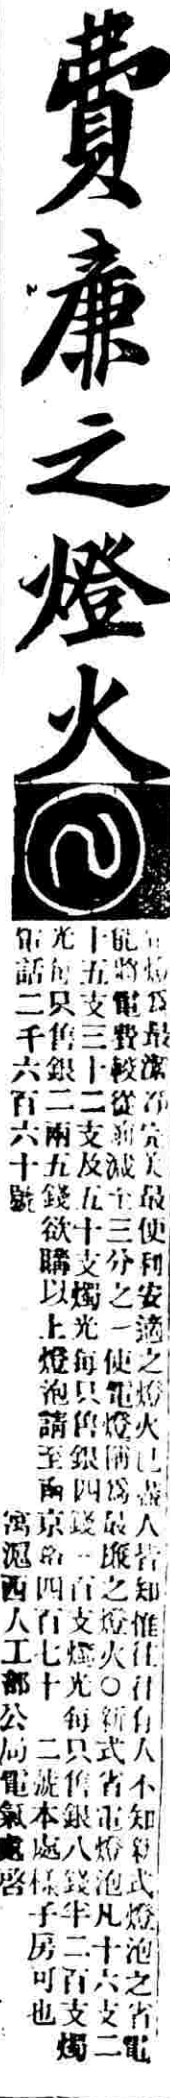 費廉之燈火
電燈爲最潔淨完美最便利安適之燈火已盡人皆知惟往往有人不知新式燈泡之省電
能將電費較從前減至三分之一使電燈開爲最廉之燈火○新式省電燈泡凡十六支二
十五支三十二支及五十支燭光每只售銀四錢一百支燭光每只售銀八錢半二百支燭
光每只售銀二兩五錢欲購以上燈泡請至南京路四百七十二號本處樣子房可也
電話二千六百六十號
寓滬西人工部公局電氣處啓